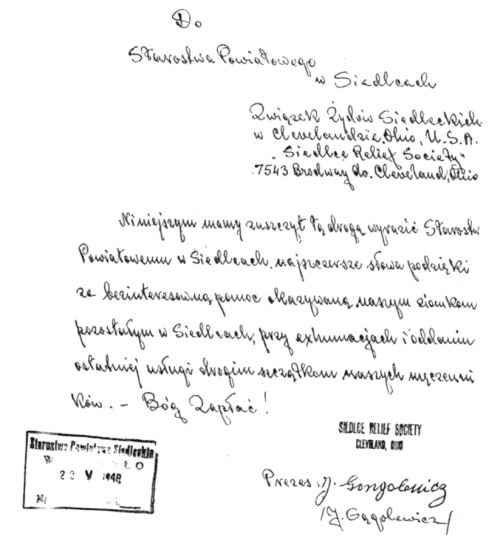 Do
Starostwa Powiatowego
w Siedlcach
Związek Żydów Siedleckich
w Clevelandzie, Ohio, U.S.A.
"Siedlce Relief Society"
7543 Brodway do. Cleveland, Ohio
Niniejszym mamy zaszczyt tą drogą wyrazić Starostw
Powiatowemu w Siedlcach, najszczersze słowa podzięki
za bezinteresowną pomoc okazywaną naszym ziomkom
pozostałym w Siedlcach, przy exhumacjach i oddaniu
ostatniej usługi drogim szczątkom naszych męczenni
ków. – Bóg Zapłać!
SIEDLCE RELIEF SOCIETY
CLEVELAND, OHIO
Starostwo Powiatowe Siedleckie
W ŁO
23 V 1948
Nr
Prezes J. Gongolewicz
/J. Gągolewicz/